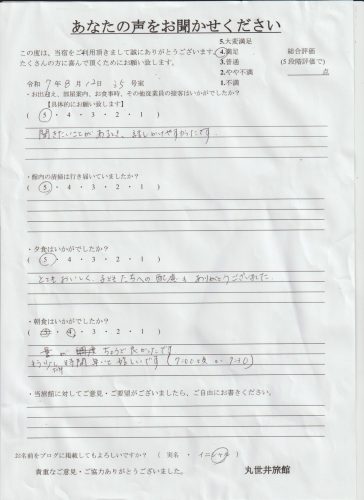 あなたの声をお聞かせください
この度は、当宿をご利用頂きまして誠にありがとうございます。
たくさんの方に喜んで頂くためにお願い致します。
5.大変満足
4.満足
3.普通
2.やや不満
1.不満
総合評価
(5段階評価で)
点
令和7年8月12日 35号室
・お出迎え、部屋案内、お食事時、その他従業員の接客はいかがでしたか?
【具体的にお願い致します】
( 5・4・3・2・1 )
聞きたいことがあるとき、話しかけやすかったです。
・館内の清掃は行き届いていましたか?
( 5・4・3・2・1 )
・夕食はいかがでしたか?
( 5・4・3・2・1 )
とてもおいしく、子どもたちへの配慮もありがとうございました。
・朝食はいかがでしたか?
( 5・4・3・2・1 )
量が ちょうど良かったです
もう少し時間早いと嬉しいです (7:00 7:30)
・当旅館に対してご意見・ご要望がございましたら、ご自由にお書きください。
お名前をブログに掲載してもよろしいですか? ( 実名 ・ イニシャル )
貴重なご意見・ご協力ありがとうございました。
丸世井旅館